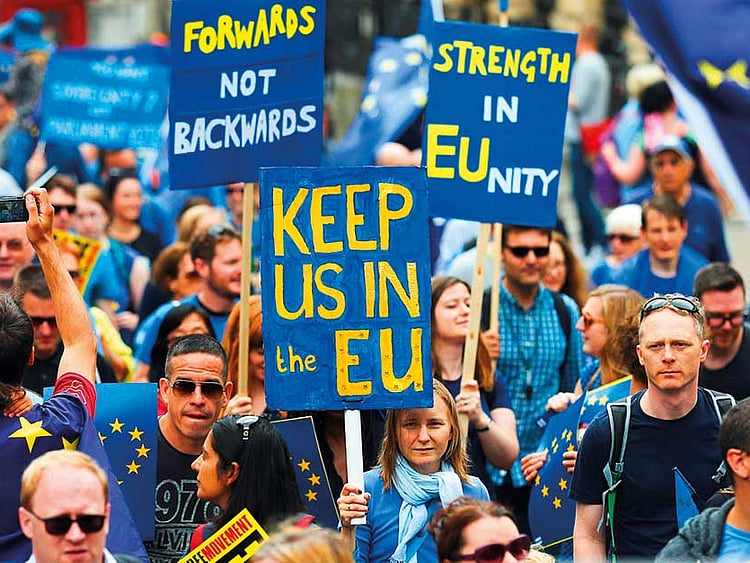 FORWARDS
NOT
BACKWARDS
STRENGTH
IN
EUNITY
KEEP
US IN
the EU
1970
FREE MOVEMENT